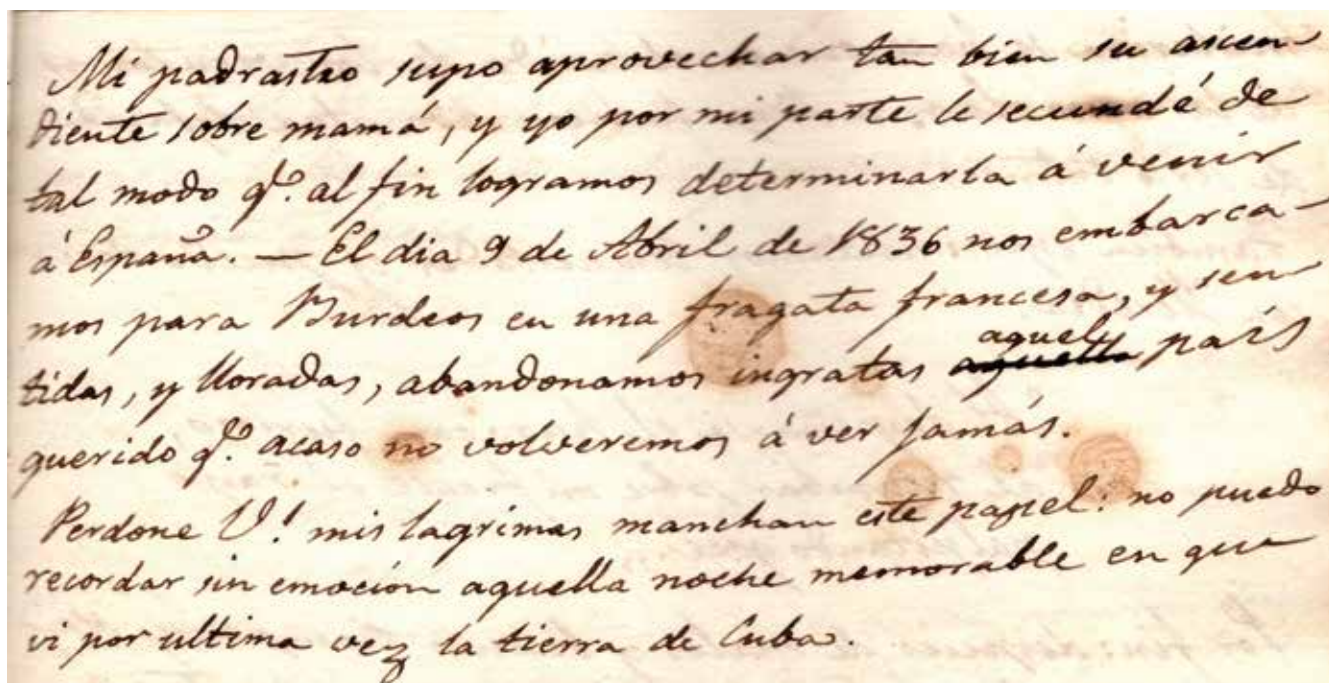 Mi padrastro supo aprovechar tan bien su ascen-
diente sobre mamá, y yo por mi parte le secundé de
tal modo qe. al fin logramos determinarla á venir
á España. — El dia 9 de Abril de 1836 nos embarca-
mos para Burdeos en una fragata francesa, y sen-
tidas, y lloradas, abandonamos ingratas aquel país
querido qe. acaso no volveremos á ver jamás.
Perdone V.! mis lagrimas manchan este papel: no puedo
recordar sin emoción aquella noche memorable en que
vi por ultima vez la tierra de Cuba.